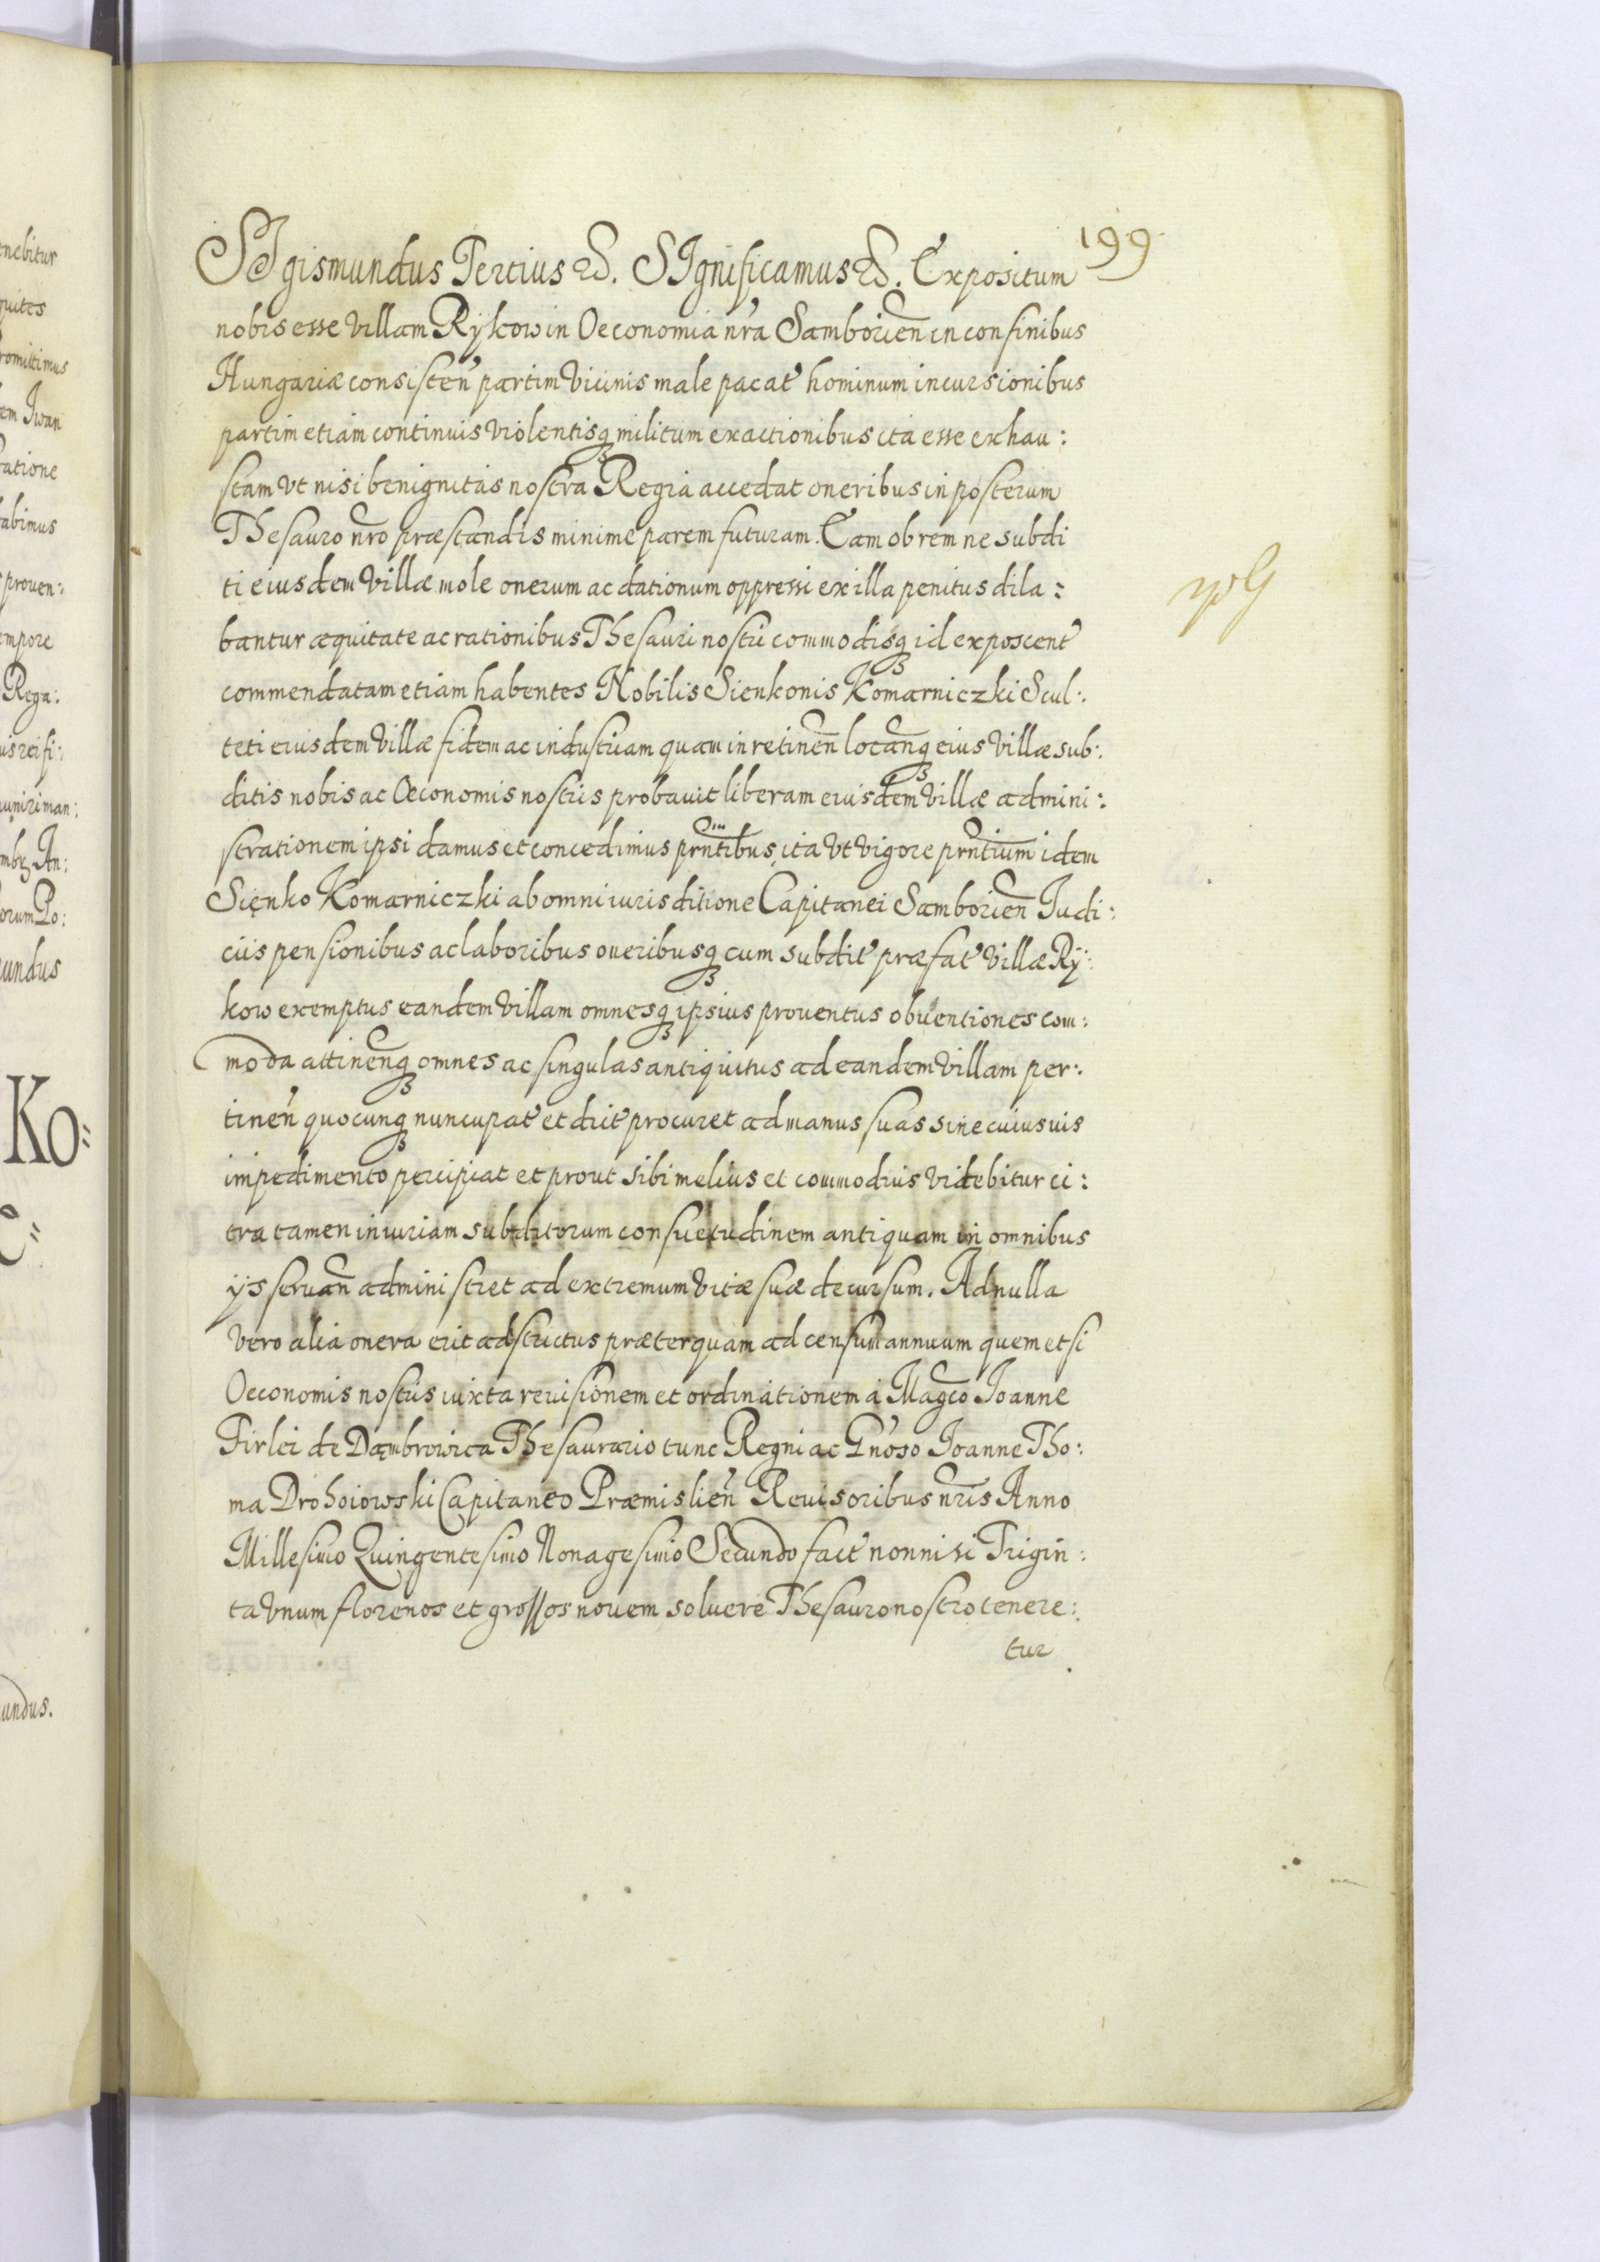 199
SIgismundus Tertius etc. SIgnificamus etc. Expositum
nobis esse villam Rykow in Oeconomia nr̃a Samborieñ in confinibus
Hungariæ consisteñ partim vicinis male pacat hominum incursionibus
partim etiam continuis violentisq₃ militum exactionibus ita esse exhau:
stam vt nisi benignitas nostra Regia accedat oneribus in posterum
Thesauro nr̃o præstandis minime parem futuram. Eam ob rem ne subdi
ti eiusdem villæ mole onerum ac dationum oppressi ex illa penitus dila:
bantur æquitate ac rationibus Thesauri nostri commodisq₃ id exposcent
commendatam etiam habentes Nobilis Sienkonis Komarniczki Scul:
teti eiusdem villæ fidem ac industriam quam in retineñ locañq₃ eius villæ sub:
ditis nobis ac Oeconomis nostris probauit liberam eiusdem villæ admini:
strationem ipsi damus et concedimus prñtibus, ita vt vigore prñtium idem
Sienko Komarniczki ab omni iurisditione Capitanei Samborieñ Judi:
ciis pensionibus ac laboribus oneribusq₃ cum subdit præfat villæ Ry:
kow exemptus eandem villam omnesq₃ ipsius prouentus obuentiones com:
moda attineñq₃ omnes ac singulas antiquitus ad eandem villam per:
tineñ quocunq₃ nuncupat et dict procuret ad manus suas sine cuiusuis
impedimento percipiat et prout sibi melius et commodius videbitur ci:
tra tamen iniuriam subditorum consuetudinem antiquam in omnibus
ijs seruañ administret ad extremum vitæ suæ decursum. Ad nulla
vero alia onera erit adstrictus præterquam ad censum annuum quem etsi
Oeconomis nostris iuxta reuisionem et ordinationem a Magco Joanne
Firlei de Dąmbrowica Thesaurario tunc Regni ac Gñoso Joanne Tho:
ma Drohoiowski Capitaneo Præmislieñ Reuisoribus nr̃is Anno
Millesimo Quingentesimo Nonagesimo Secundo fact nonnisi Trigin:
ta vnum florenos et grossos nouem soluere Thesauro nostro tenere:
tur